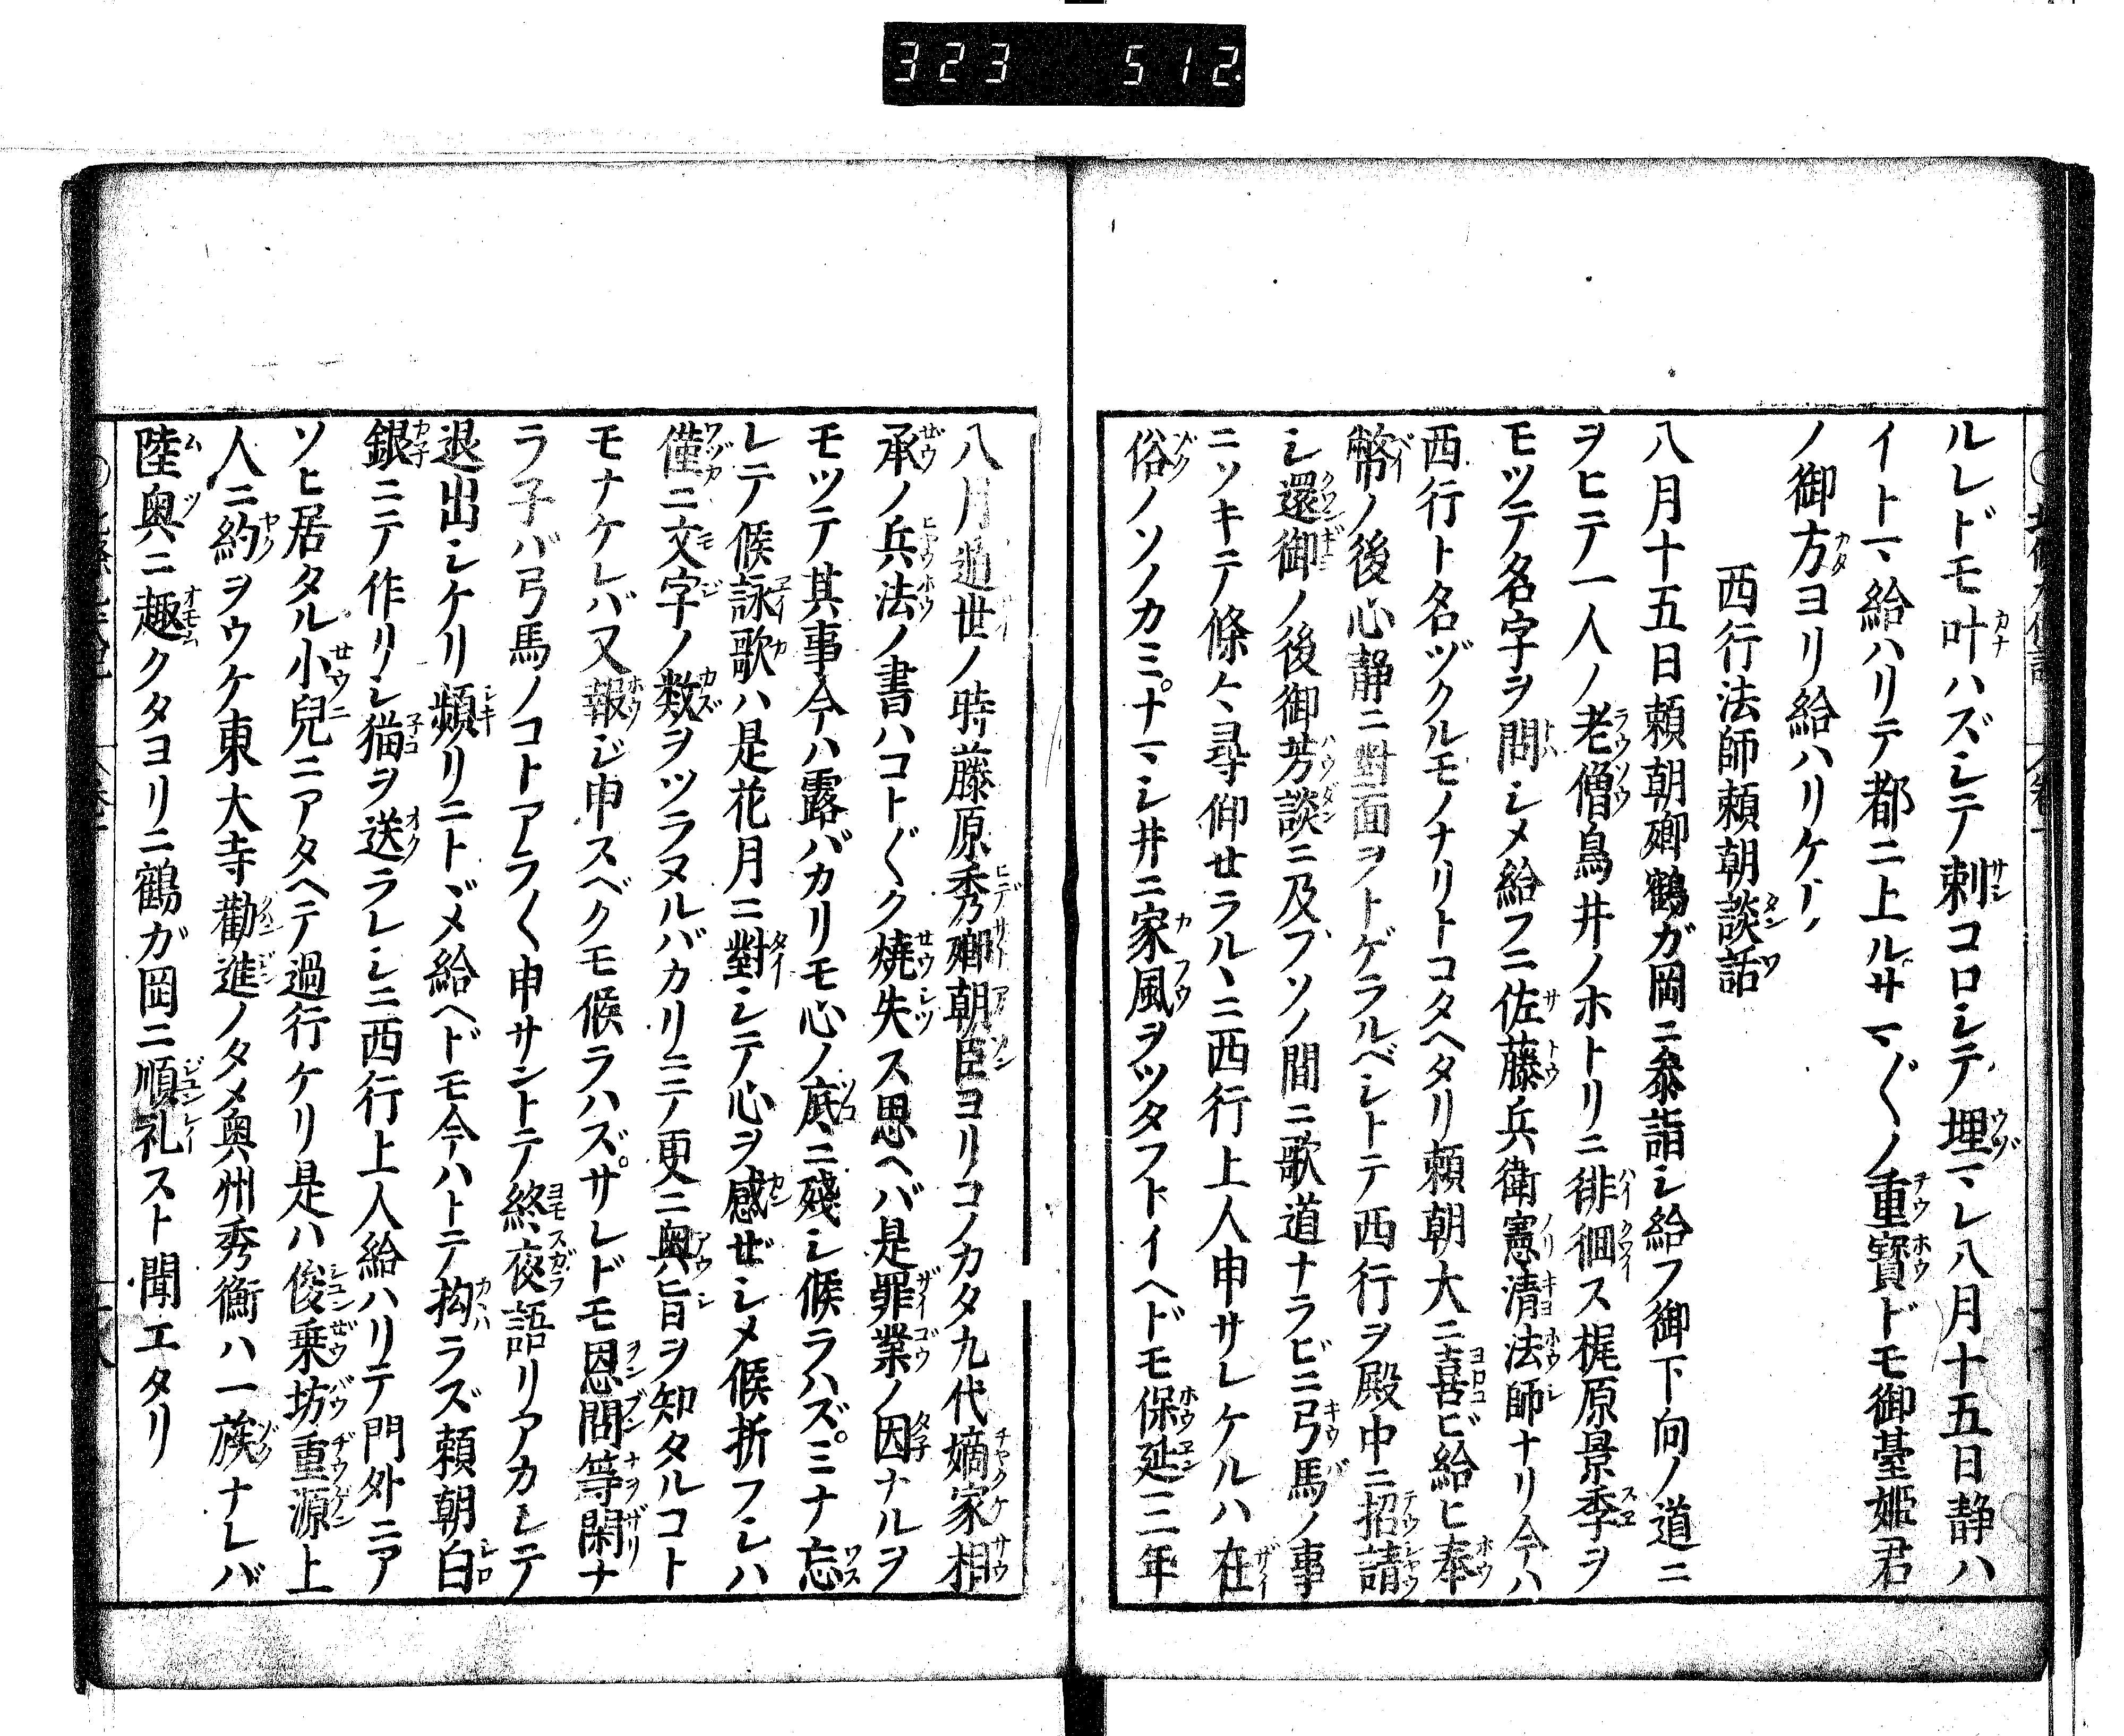 323 512
ルレドモ叶ハズシテ刺コロシテ埋マレ八月十五日静ハ
イトマ給ハリテ都ニ上ルサマ〲ノ重寳ドモ御臺姫君
ノ御方ヨリ給ハリケリ
西行法師頼朝談話
八月十五日頼朝卿鶴ガ岡ニ叅詣シ給フ御下向ノ道ニ
ヲヒテ一人ノ老僧鳥井ノホトリニ徘徊ス梶原景季ヲ
モツテ名字ヲ問シメ給フニ佐藤兵衛憲清法師ナリ今ハ
西行ト名ヅクルモノナリトコタヘタリ頼朝大ニ喜ビ給ヒ奉
幣ノ後心静ニ對面ヲトゲラルベシトテ西行ヲ殿中ニ招請
シ還御ノ後御芳談ニ及ブソノ間ニ歌道ナラビニ弓馬ノ事
ニツキテ條々尋仰せラルヽニ西行上人申サレケルハ在
俗ノソノカミ。ナマシ井ニ家風ヲツタフトイヘドモ保延三年
八月遁世ノ時藤原秀郷朝臣ヨリコノカタ九代嫡家相
承ノ兵法ノ書ハコト〲ク焼失ス思ヘバ是罪業ノ因ナルヲ
モツテ其事今ハ露バカリモ心ノ底ニ殘シ候ラハズ。ミナ忘
レテ候詠歌ハ是花月ニ對シテ心ヲ感ぜシメ候折フシハ
僅ニ文字ノ数ヲツラヌルバカリニテ更ニ奥旨ヲ知タルコト
モナケレバ又報ジ申スベクモ候ラハズ。サレドモ恩問等閑ナ
ラ子バ弓馬ノコトアラ〱申サントテ終夜語リアカシテ
退出シケリ頻リニトヾメ給ヘドモ今ハトテ拘ラズ頼朝白
銀ニテ作リシ猫ヲ送ラレシニ西行上人給ハリテ門外ニア
ソヒ居タル小兒ニアタヘテ過行ケリ是ハ俊乗坊重源上
人ニ約ヲウケ東大寺勸進ノタメ奥州秀衡ハ一族ナレバ
陸奥ニ趣クタヨリニ鶴ガ岡ニ順礼スト聞エタリ